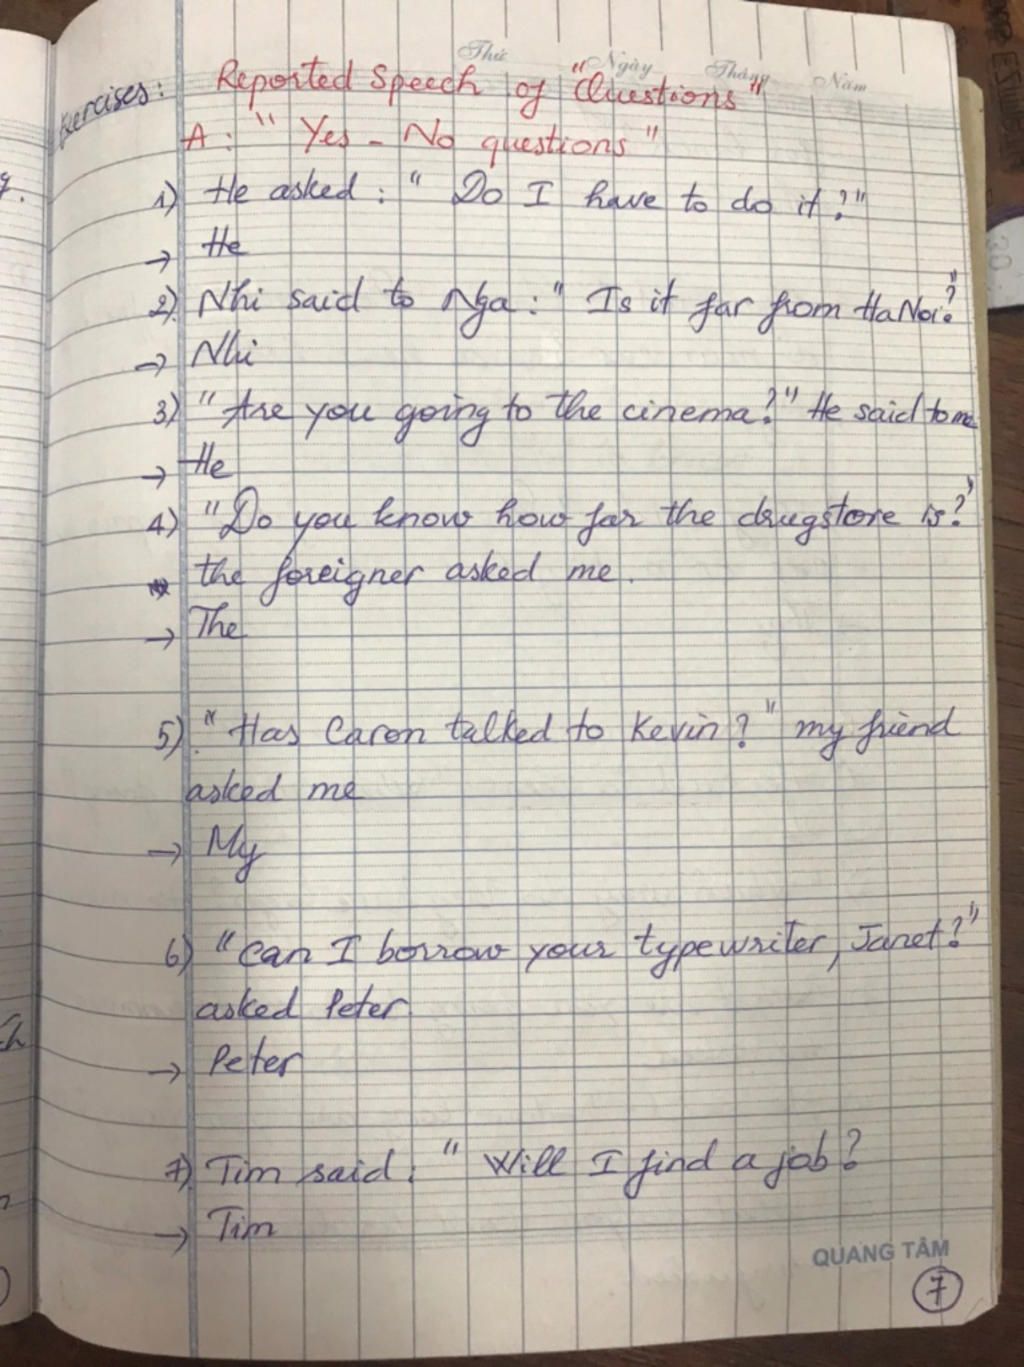 Thứ Ngày Tháng Năm
Exercises: Reported Speech of "Questions"
A: "Yes - No questions"
1) He asked: "Do I have to do it?"
→ He
2) Nhi said to Nga: "Is it far from HaNoi?"
→ Nhi
3) "Are you going to the cinema?" He said to me
→ He
4) "Do you know how far the drugstore is?"
the foreigner asked me.
→ The
5) "Has Caron talked to Kevin?" my friend
asked me
→ My
6) "Can I borrow your typewriter, Janet?"
asked Peter
→ Peter
7) Tim said: "Will I find a job?
→ Tim
QUANG TÂM
7